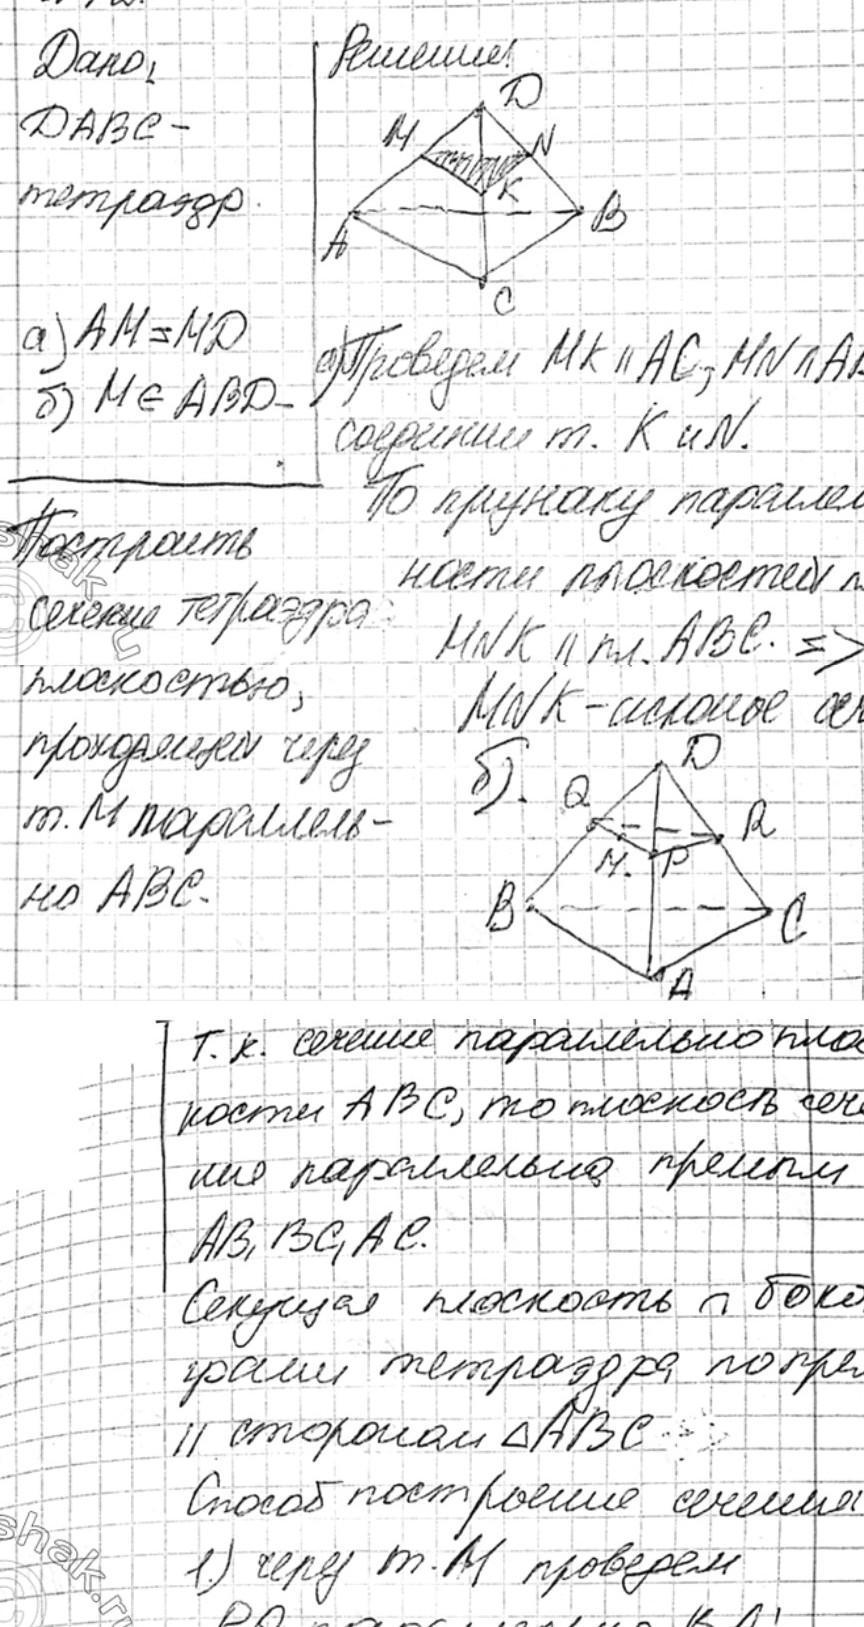 Дано:
DABC -
тетраэдр.
а) AM = MD
б) M ∈ ABD -
Построить
сечение тетраэдра
плоскостью,
проходящей через
т. M параллель-
но ABC.
Решение:
D
M
N
K
A
B
C
а) Проведем MK || AC, MN ∩ AB
соединим т. K и N.
По признаку параллел
ности плоскостей п
MNK || пл. ABC. =>
MNK - искомое сеч
б).
D
Q
R
M.
P
B
C
A
Т. к. сечение параллельно плос
кости ABC, то плоскость сече
ния параллельна прямым
AB, BC, AC.
Секущая плоскость ∩ боко
грани тетраэдра по пря
|| сторонам △ABC
Способ построения сечения:
1.) через т. M проведем